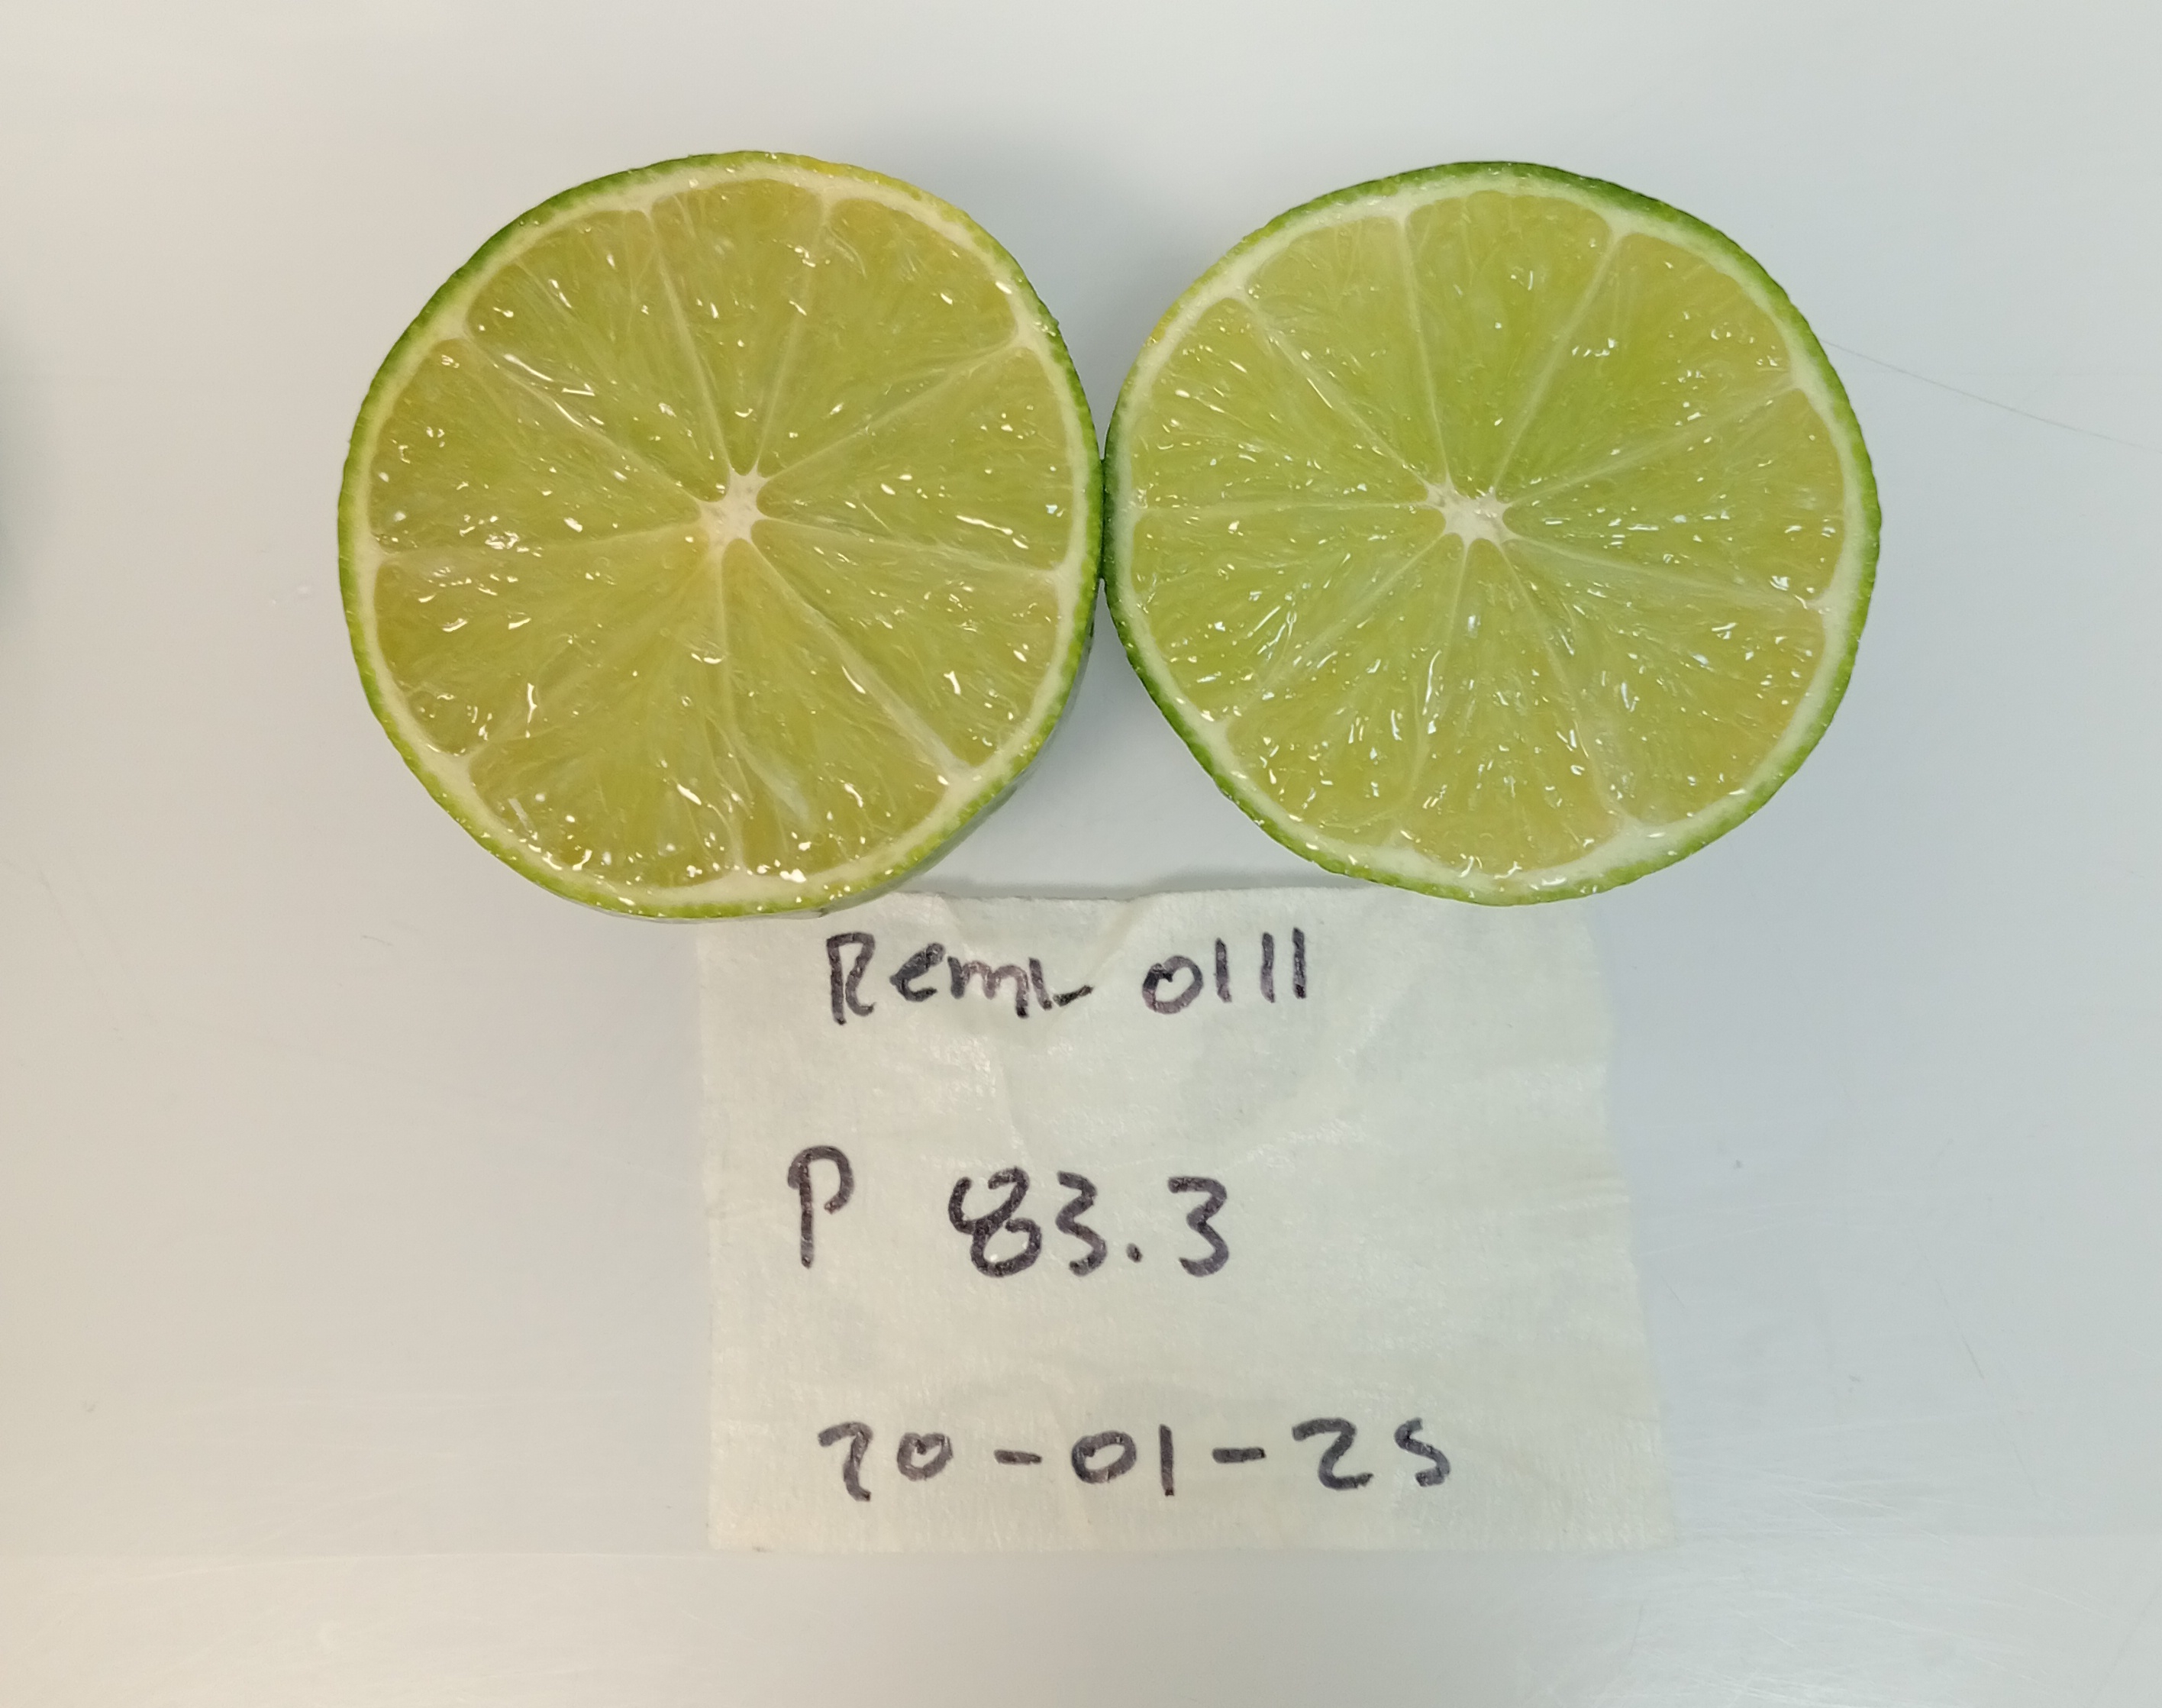 Remi 0111
P 83.3
20-01-25